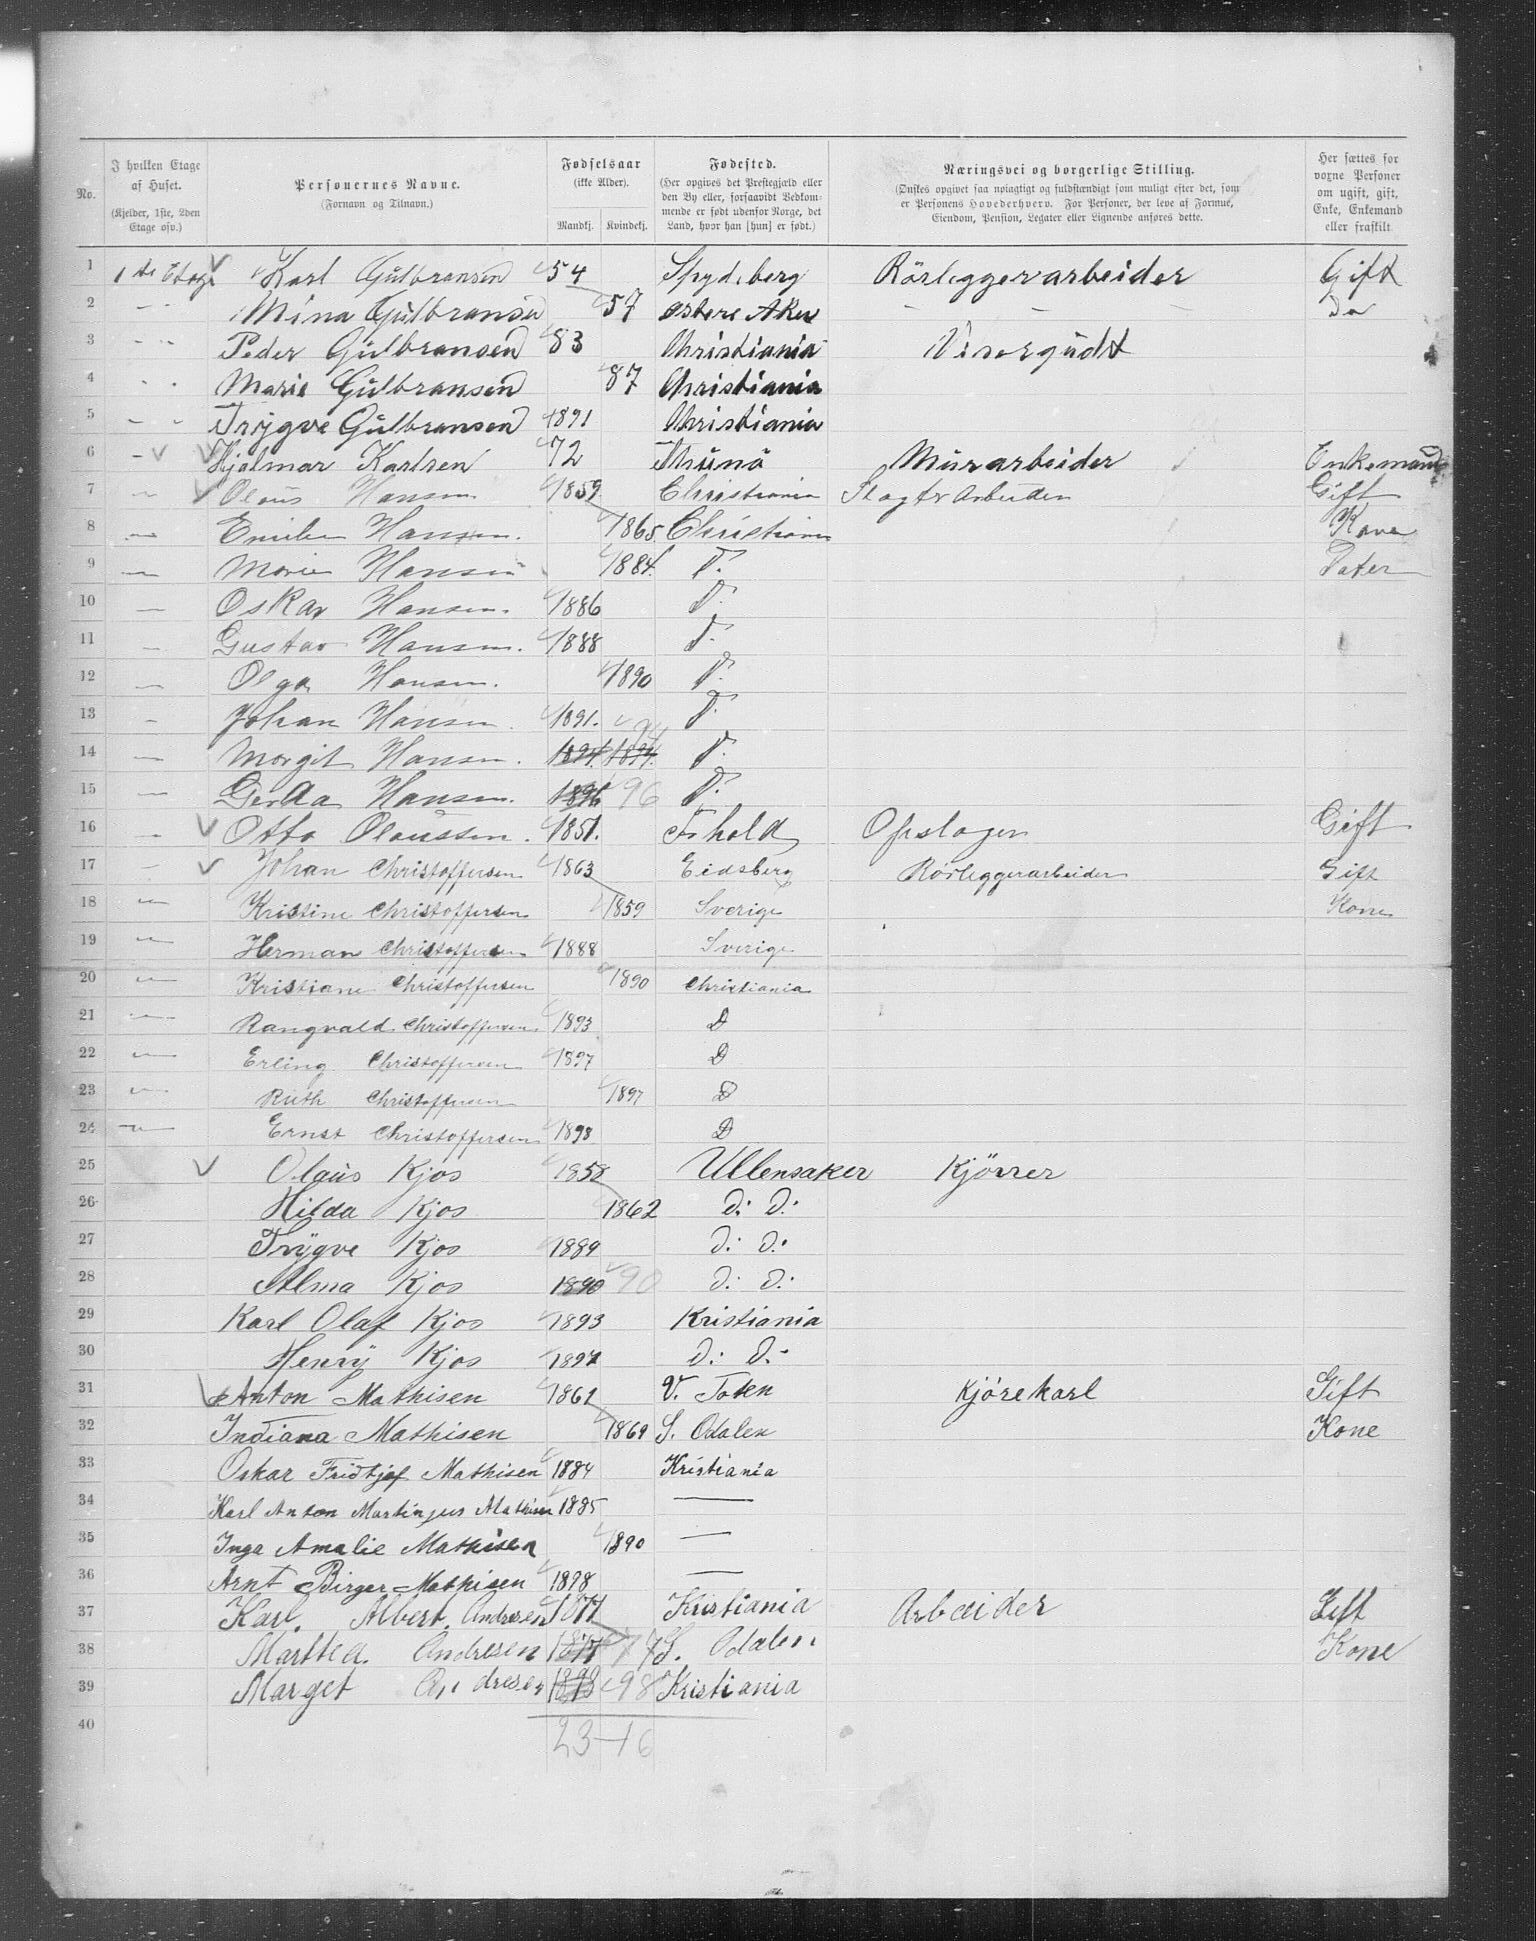 No. I hvilken Etage af Huset. (Kjelder, 1ste, 2den Etage osv.) Personernes Navne. (Fornavn og Tilnavn.) Fødselsaar (ikke Alder). Mandkj. Kvindekj. Fødested. (Her opgives det Prestegjæld eller den By eller, forsaavidt Vedkommende er født udenfor Norge, det Land, hvor han [hun] er født.) Næringsvei og borgerlige Stilling. (Ønskes opgivet saa nøiagtigt og fuldstændigt som muligt efter det, som er Personens Hovederhverv. For Personer, der leve af Formue, Eiendom, Pension, Legater eller Lignende anføres dette. Her sættes for voxne Personer om ugift, gift, Enke, Enkemand eller fraskilt
1 1ste Etage Karl Gulbransen 54 Spydeberg Rörleggerarbeider Gift
2 - - Mina Gulbransen 57 østere Aker - - - Do
3 - - Peder Gulbransen 83 Christiania Visergudt
4 - - Marie Gulbransen 87 Christiania
5 - - Trygve Gulbransen 1891 Christiania
6 - Hjalmar Karlsen 72 Murarbeider Enkemand
7 - Olaus Hansen 1859 Christiania Slagter Arbeider Gift
8 - Emilie Hansen. 1865. Christiania Kone
9 - Marie Hansen 1884. D.
10 - Oskar Hansen. 1886 D.
11 - Gustav Hansen. 1888 D.
12 - Olga Hansen. 1890 D.
13 - Johan Hansen 1891. D.
14 - Margit Hansen. 1894. 1894. 94 D.
15 - Gerda Hansen. 1896 96 D.
16 - Otto Olaussen. 1851. Opslager Gift
17 - Johan Christoffersen 1863 Eidsberg Rörleggerarbeider Gift
18 - Kristine Christoffersen 1859 Sverige Kone
19 - Herman Christoffersen 1888 Sverige
20 - Kristiane Christoffersen 1890 Christiania
21 - Rangvald Christoffersen 1893 D
22 - Erling Christoffersen 1897 D
23 - Ruth Christoffersen 1897 D
24 - Ernst Christoffersen 1898 D
25 Olaus Kjos 1858 Ullensaker Kjörrer
26 Hilda Kjos 1862 D: D:
27 Trygve Kjos 1889 D: D:
28 Alma Kjos 1890 90 D: D:
29 Karl Olaf Kjos 1893 Kristiania
30 Henry Kjos 1897 D: D:
31 Anton Mathisen 1861 V. Toten Kjörekarl Gift
32 Indiana Mathisen 1869 S. Odalen Kone
33 Oskar Fridtjof Mathisen 1884 Kristiania
34 Karl Anton Martinjus Mathisen 1885 —
35 Inga Amalie Mathisen 1890 —
36 Arnt Birger Mathisen 1898 —
37 Karl. Albert. Andresen 1877 Kristiania Arbeider Gift
38 Marthea. Andresen 1877 77 S. Odalen Kone
39 Marget Andresen 1898 98 Kristiania
40 23 - 16